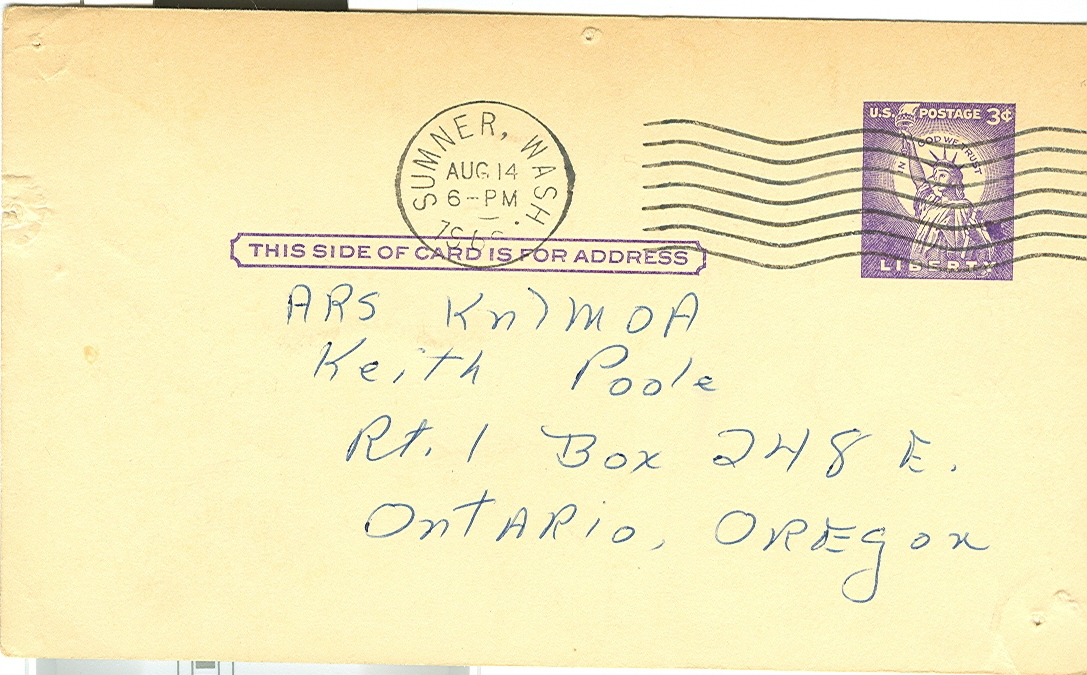 SUMNER, WASH.
AUG 14
6-PM
U.S. POSTAGE 3¢
IN GOD WE TRUST
LIBERTY
THIS SIDE OF CARD IS FOR ADDRESS
ARS Kn7MOA
Keith Poole
Rt. 1 Box 248 E.
OntARio, OREgon